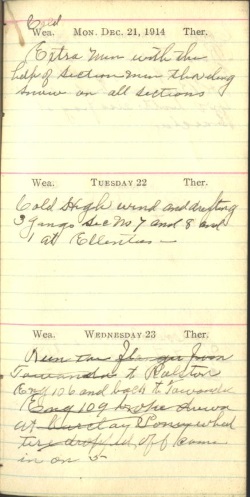 Cold
Wea. MON. DEC. 21, 1914 Ther.
Extra men with the
help of section men shoveling
snow on all sections
Wea. TUESDAY 22 Ther.
Cold High wind and drifting
3 gangs Sec No 7 and 8 and
1 at Ellenton
Wea. WEDNESDAY 23 Ther.
Run the Flanger from
Towanda to Ralston
Eng 106 and back to Towanda
Eng 109 broke down
at Barclay wheel
tire dropped off came
in on 5